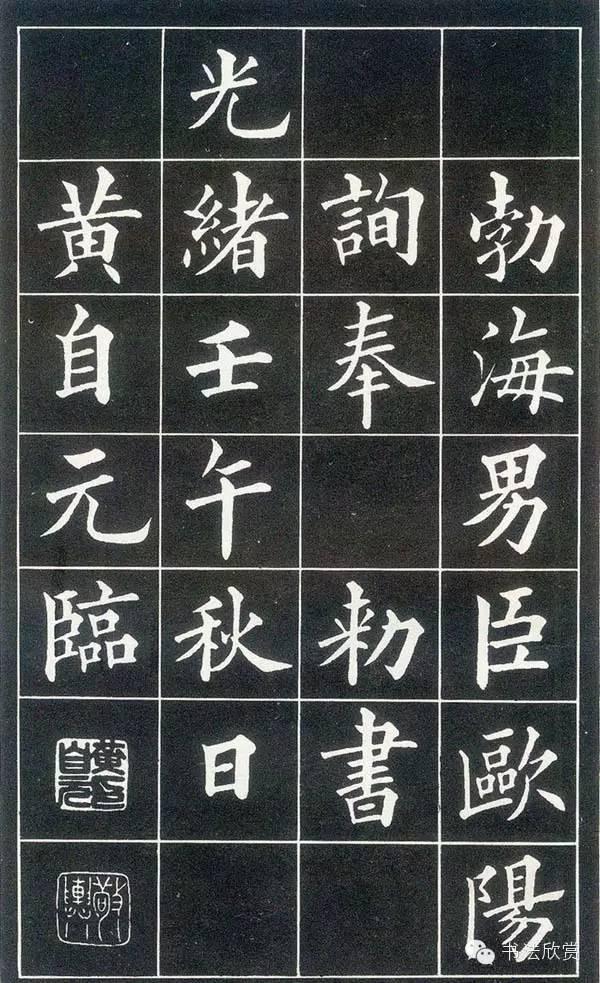 勃海男臣歐陽
詢奉勑書
光緒壬午秋日
黃自元臨
黃自元印
敬輿
书法欣赏